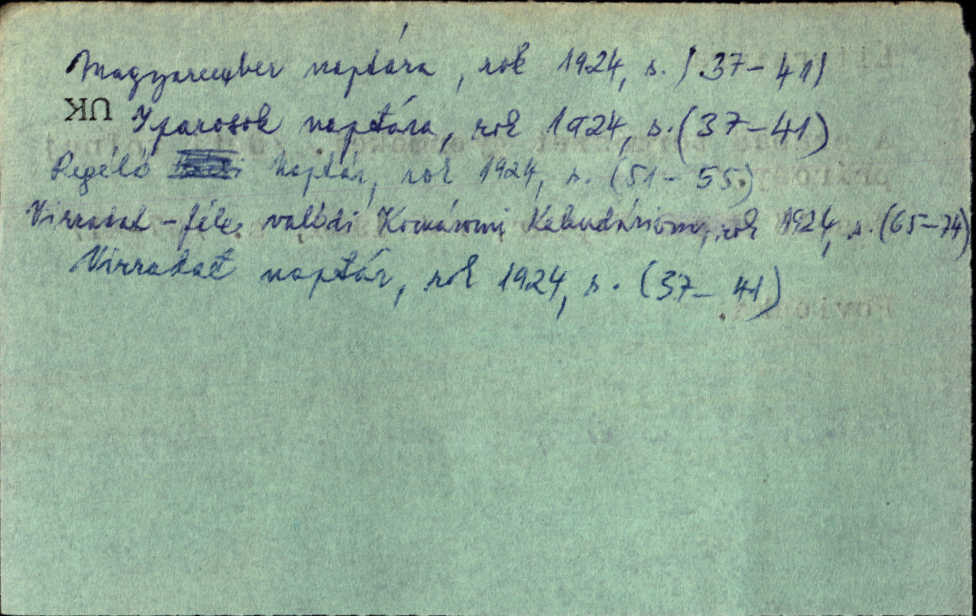 Magyarember naptára, rok 1924, s. (37-41)
UK Iparosok naptára, rok 1924, s. (37-41)
Regélő Naptár, rok 1924, s. (51-55)
Virradat-féle valódi Komáromi Kalendárium, rok 1924, s. (65-74)
Virradat naptár, rok 1924, s. (37-41)